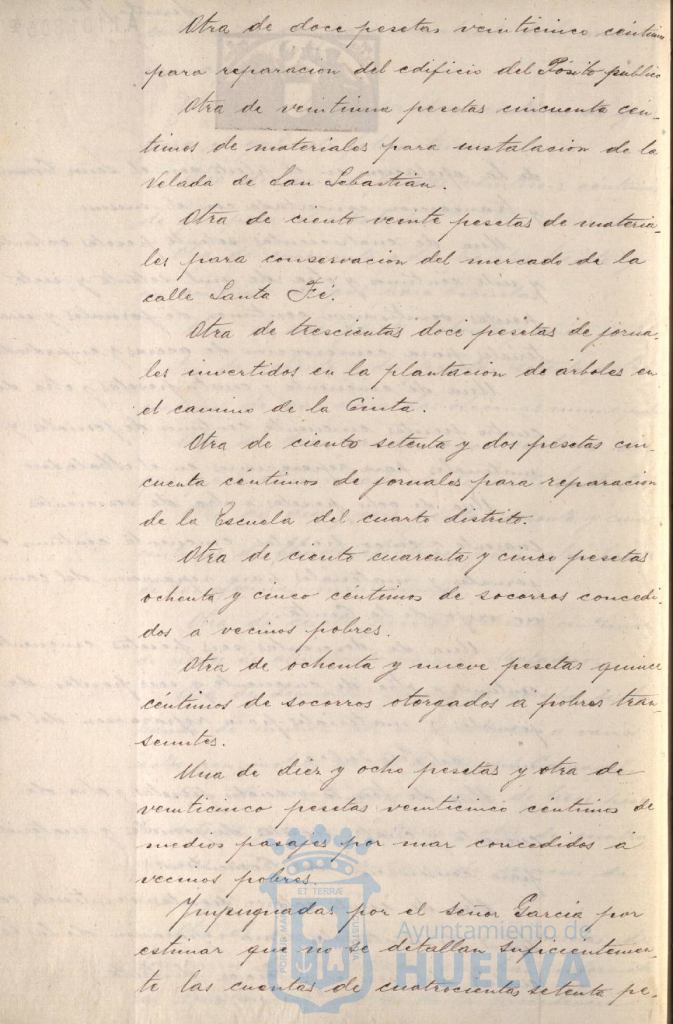 Otra de doce pesetas veinticinco céntimos
para reparacion del edificio del Pósito público
Otra de veintiuna pesetas cincuenta cén-
timos de materiales para instalación de la
Velada de San Sebastián.
Otra de ciento veinte pesetas de materia-
les para conservación del mercado de la
calle Santa Fé.
Otra de trescientas doce pesetas de jorna-
les invertidos en la plantación de árboles en
el camino de la Cinta.
Otra de ciento setenta y dos pesetas cin-
cuenta céntimos de jornales para reparacion
de la Escuela del cuarto distrito.
Otra de ciento cuarenta y cinco pesetas
ochenta y cinco céntimos de socorros concedi-
dos á vecinos pobres.
Otra de ochenta y nueve pesetas quince
céntimos de socorros otorgados a pobres tran-
seuntes.
Una de diez y ocho pesetas y otra de
veinticinco pesetas veinticinco céntimos de
medios pasajes por mar concedidos á
vecinos pobres.
Impugnadas por el señor García por
estimar que no se detallan suficientemen-
te las cuentas de cuatrocientas setenta pe-
ET TERRÆ
PORTUS MARIS
CUSTODIA
Ayuntamiento de
HUELVA